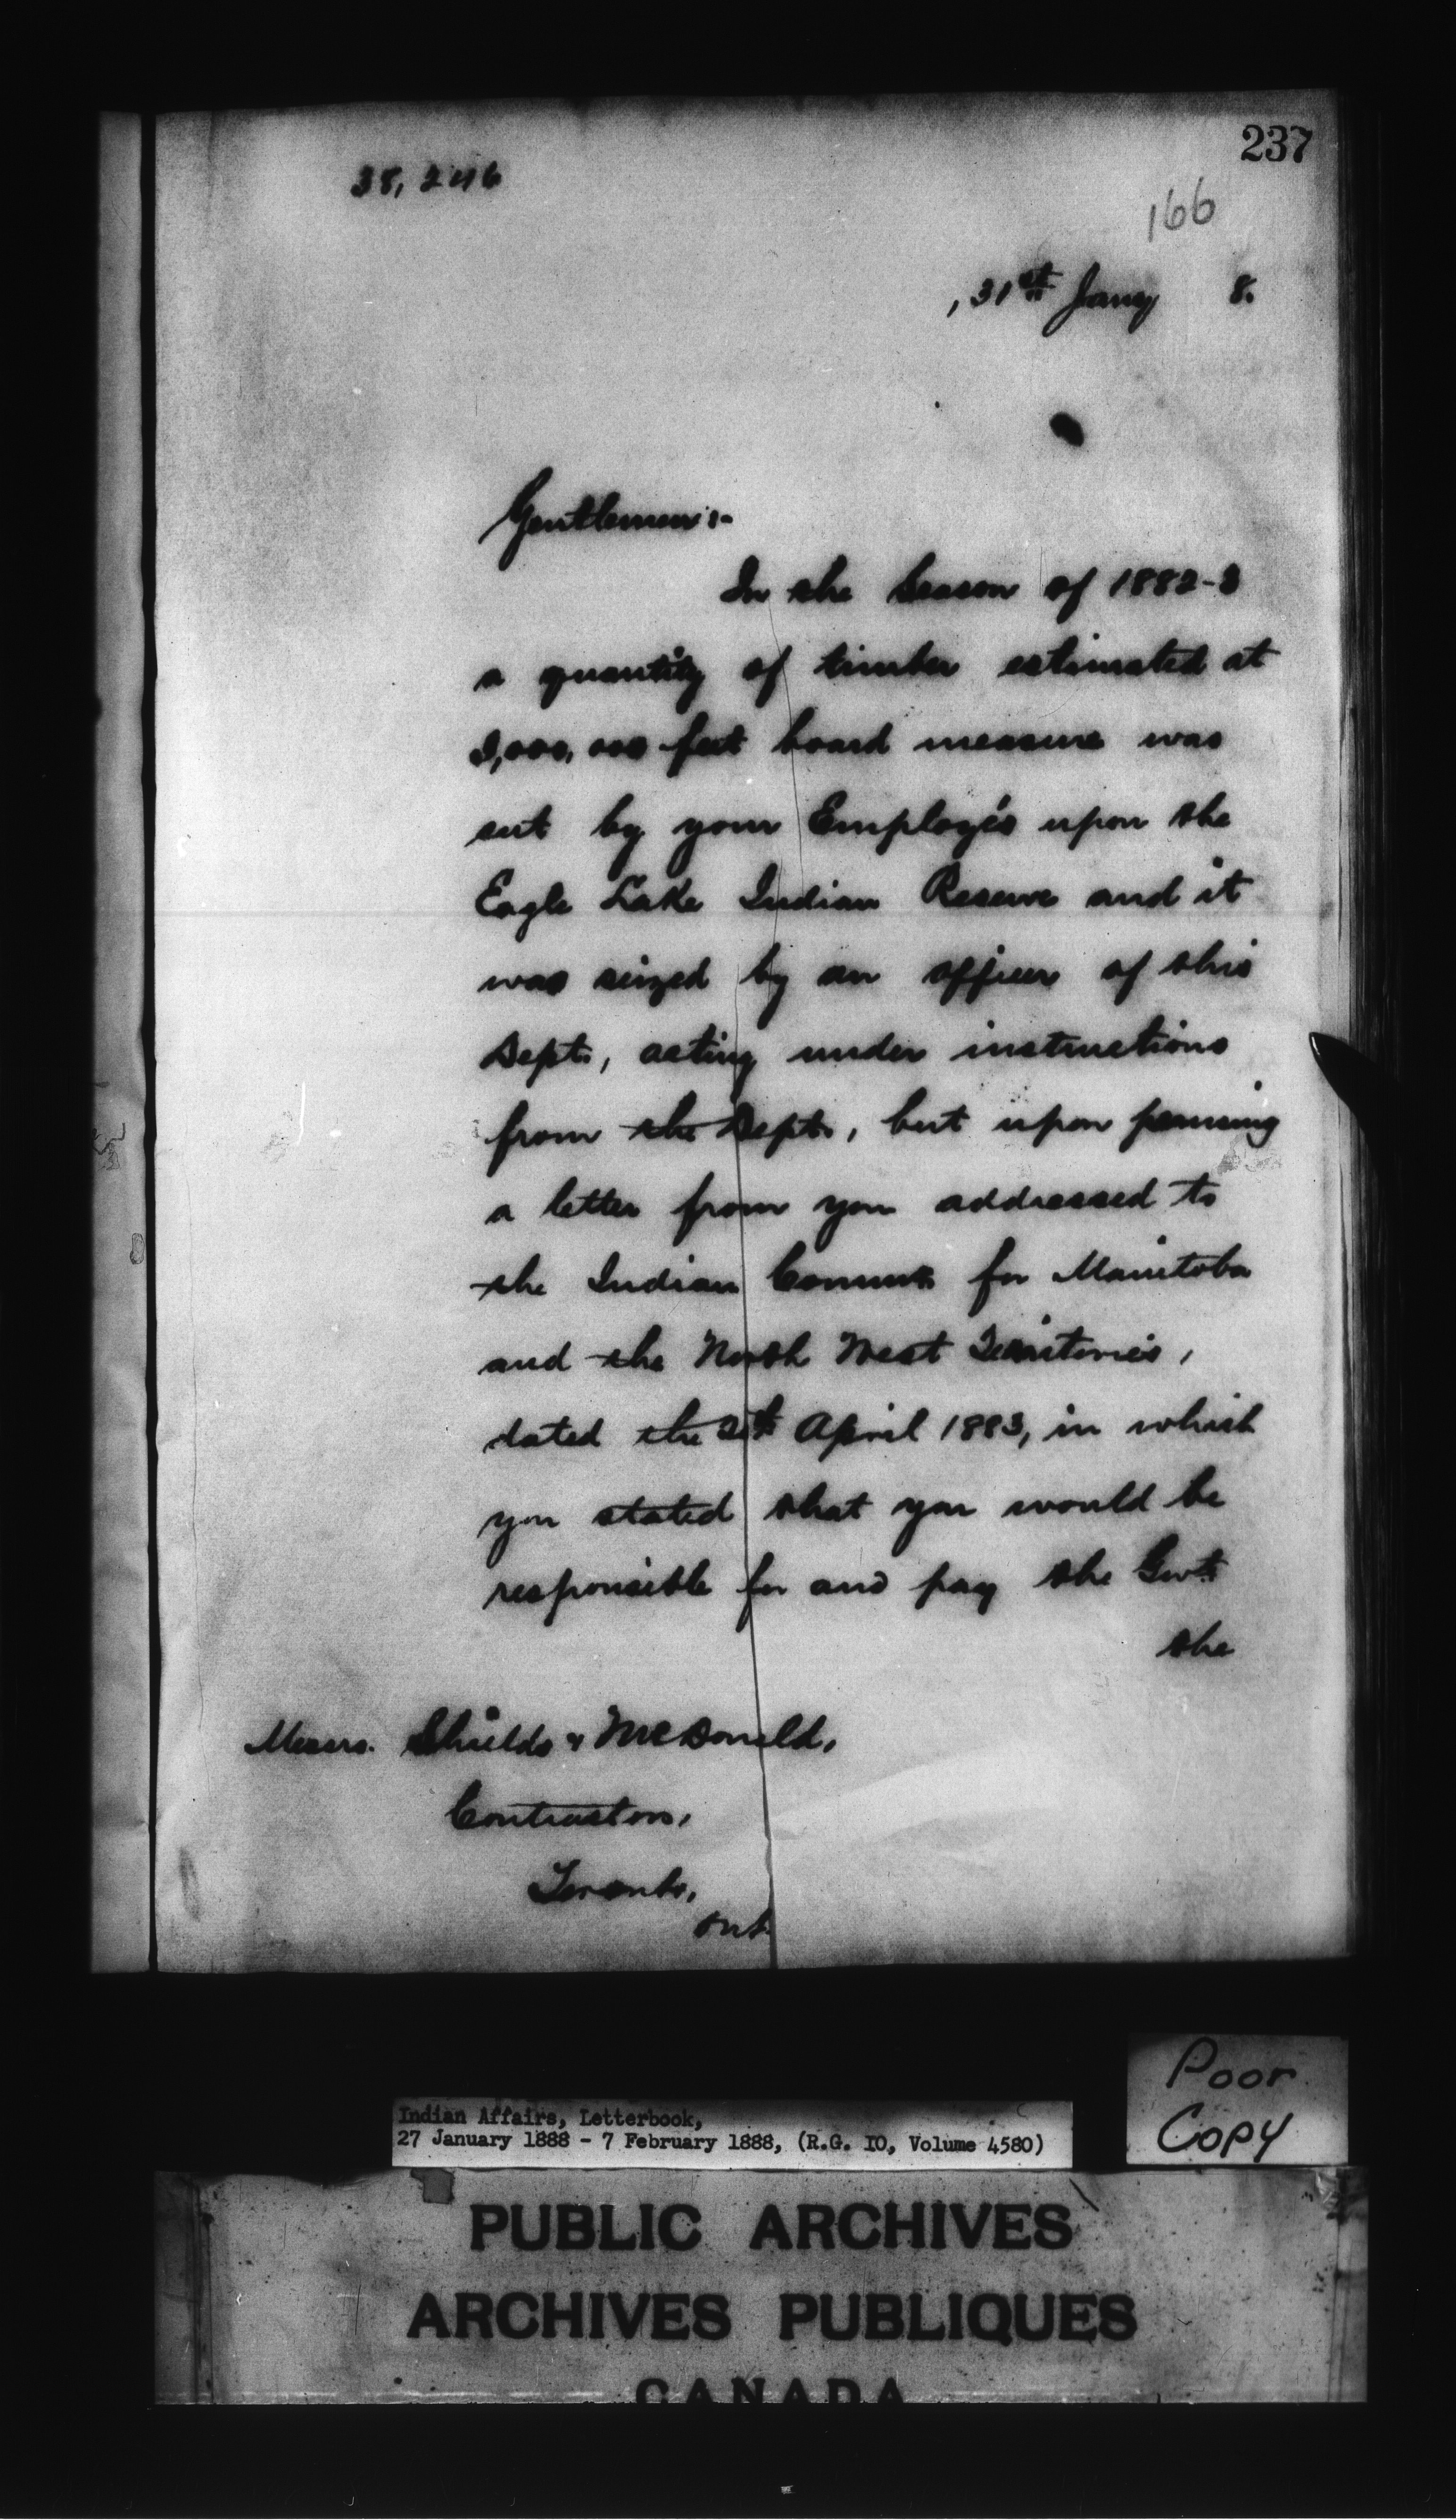 237
38,246
166
, 31st Jany 8.
Gentlemen:-
In the Season of 1882-3
a quantity of timber estimated at
000,000 feet board measure was
cut by your Employés upon the
Eagle Lake Indian Reserve and it
was seized by an officer of this
Dept., acting under instructions
from the Dept., but upon perusing
a letter from you addressed to
the Indian Commr. for Manitoba
and the North West Territories,
dated the April 1883, in which
you stated that you would be
responsible for and pay the Govt.
the
Messrs. Shields & McDonald,
Contractors,
Toronto,
Ont.
Poor
Copy
Indian Affairs, Letterbook,
27 January 1888 - 7 February 1888, (R.G. IO, Volume 4580)
PUBLIC ARCHIVES
ARCHIVES PUBLIQUES
CANADA